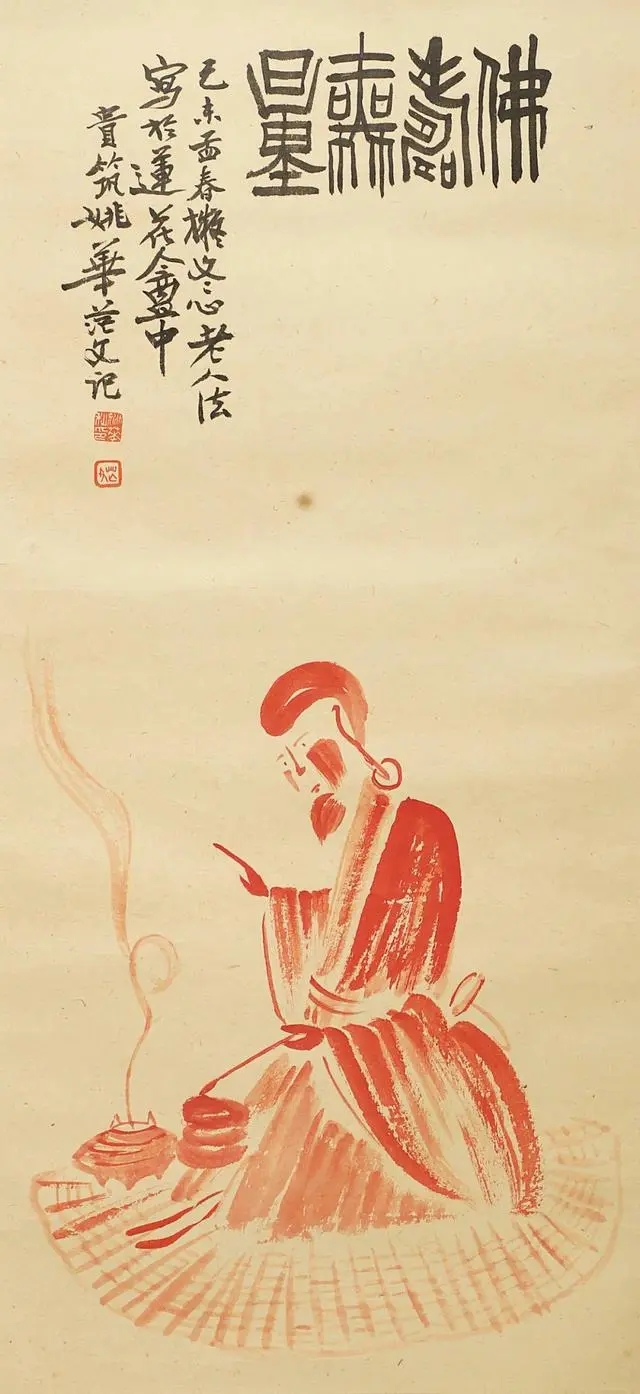 佛壽無量
己未孟春擬冬心老人法
寫於蓮花盦中
貴筑姚華茫父記